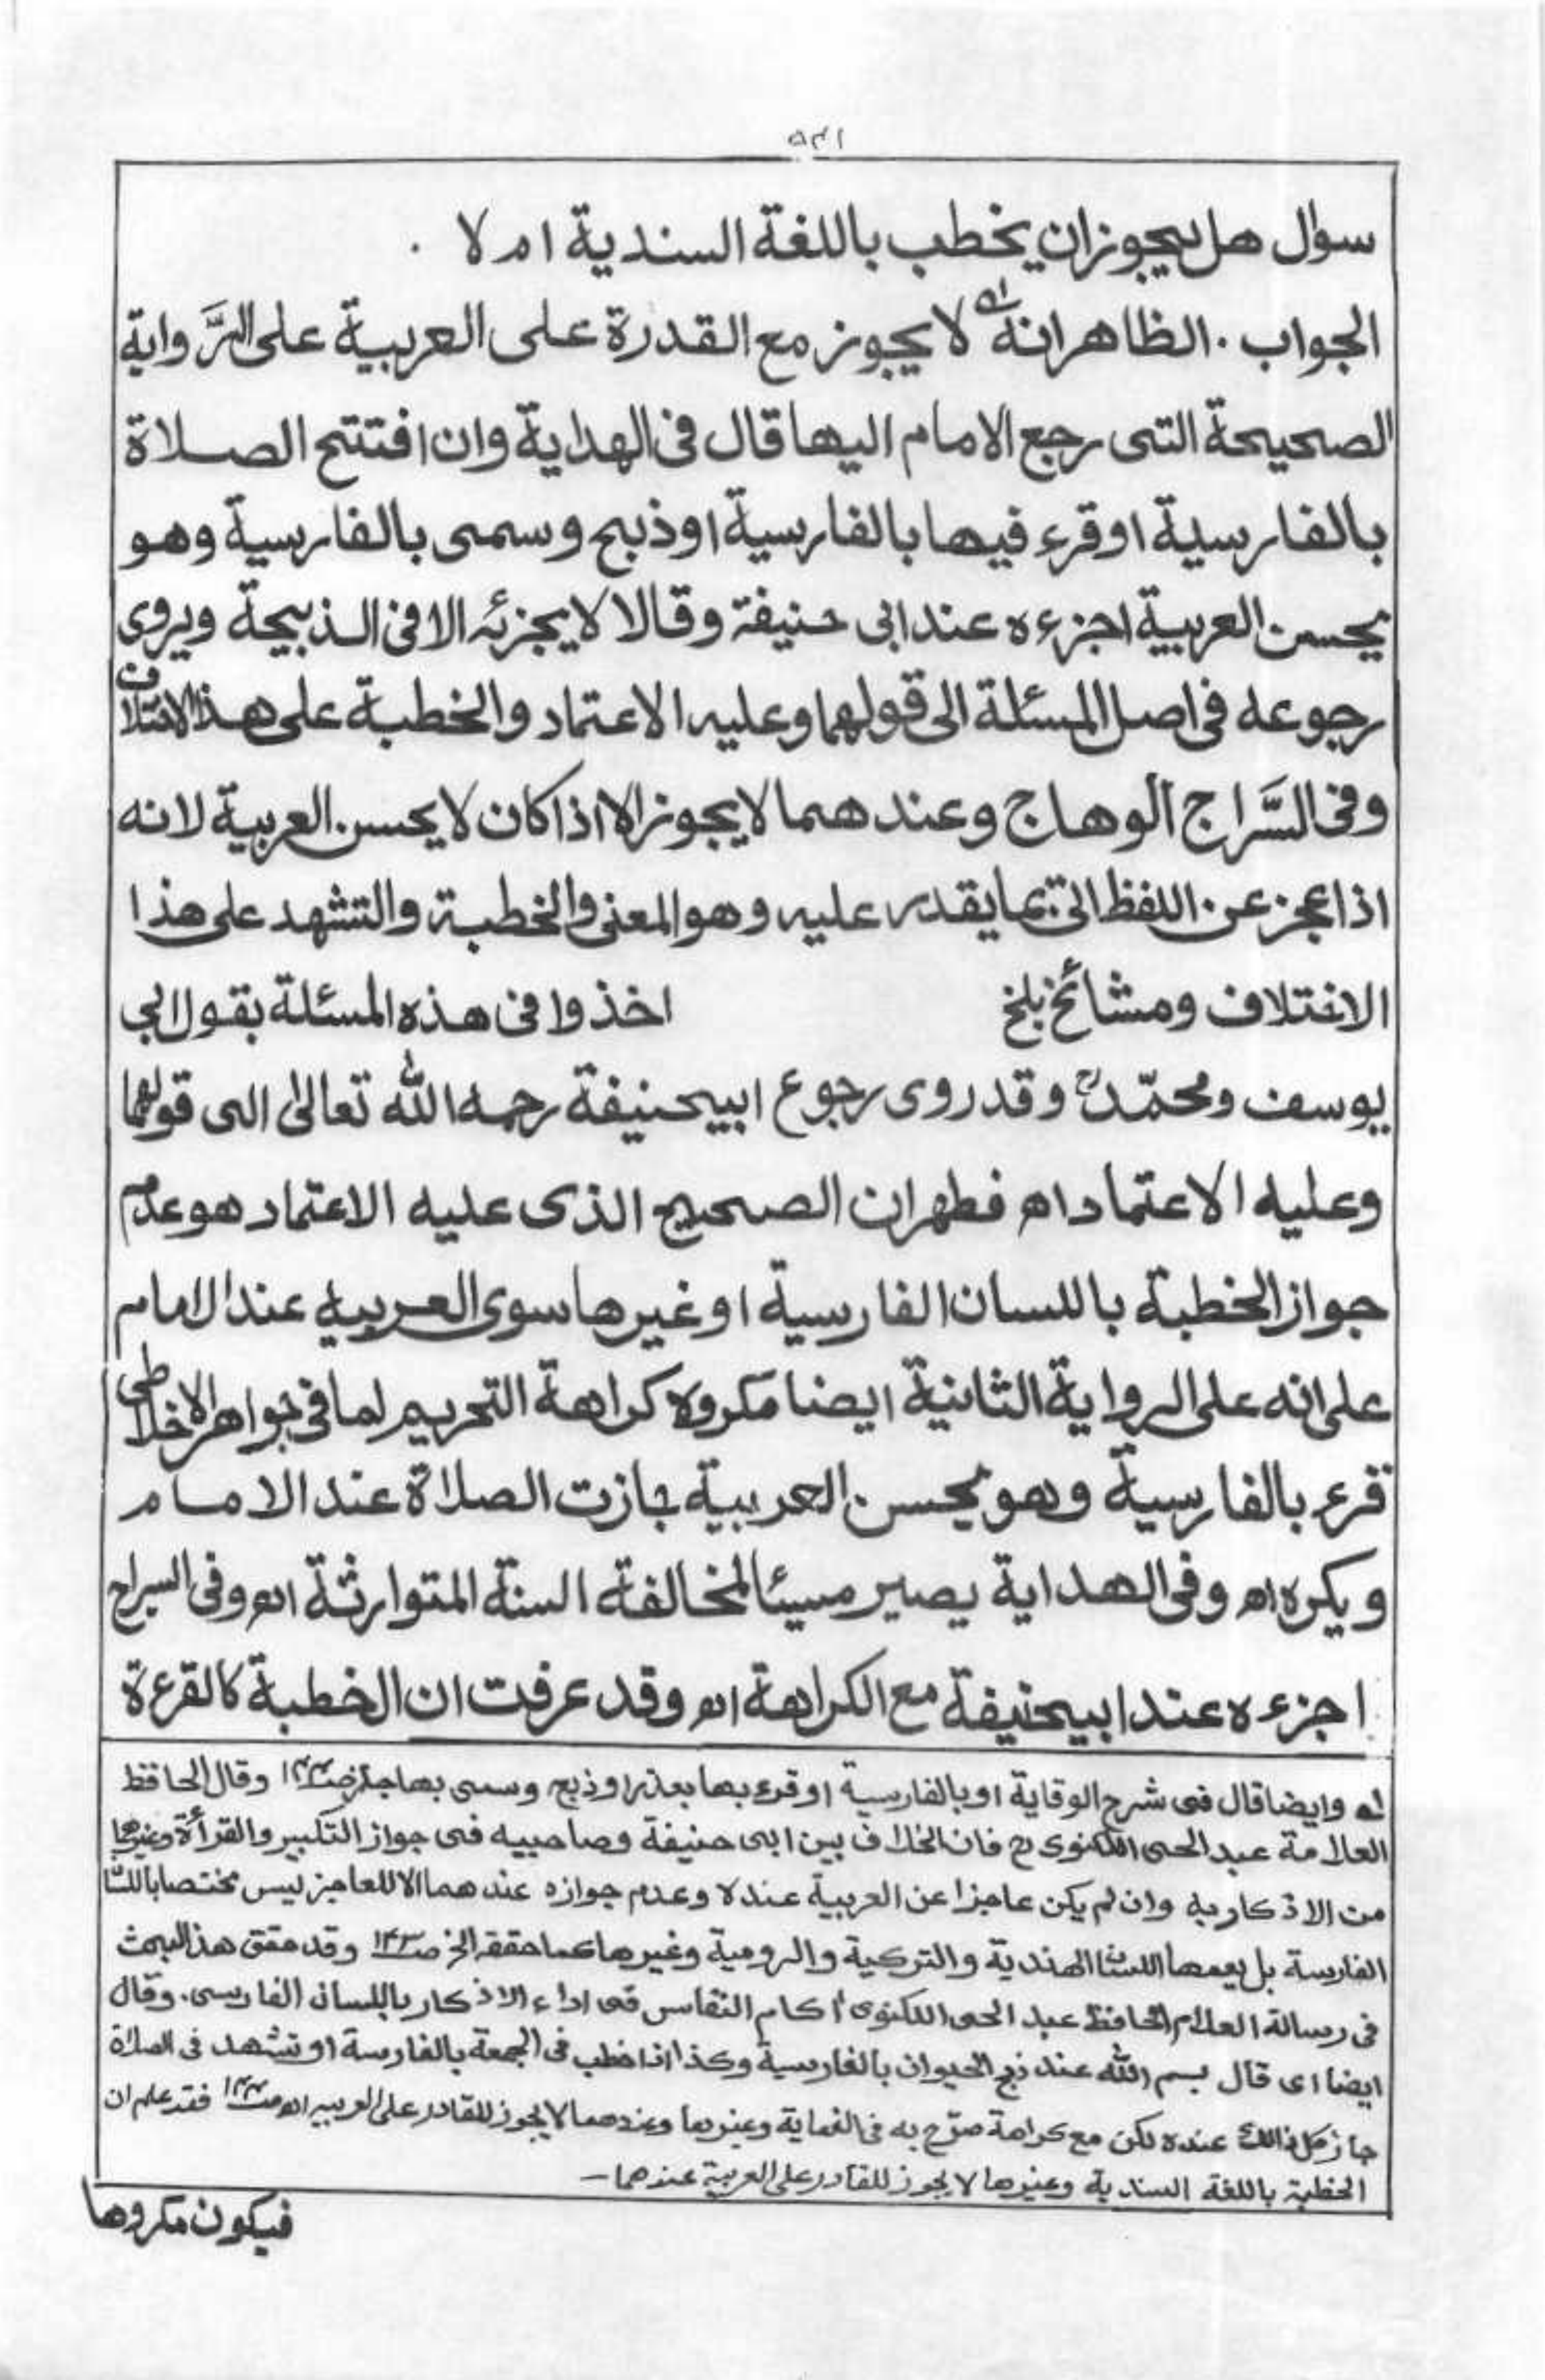 ٥٤١
سوال هل يجوز ان يخطب باللغة السندية ام لا .
الجواب . الظاهر انه لا يجوز مع القدرة على العربية على الرَّواية
الصحيحة التى رجع الامام اليها قال فى الهداية وان افتتح الصلاة
بالفارسية او قرء فيها بالفارسية او ذبح وسمى بالفارسية وهو
يحسن العربية اجزءه عند ابى حنيفة وقالا لا يجزئه الا فى الذبيحة ويروى
رجوعه فى اصل المسئلة الى قولهما وعليه الاعتماد والخطبة على هذا الاختلاف
وفى السَّراج الوهاج وعندهما لا يجوز الا اذا كان لا يحسن العربية لانه
اذا عجز عن اللفظ اتى بما يقدر عليه وهو المعنى والخطبة والتشهد على هذا
الاختلاف ومشائخ بلخ اخذوا فى هذه المسئلة بقول ابي
يوسف ومحمّدؒ وقد روى رجوع ابيحنيفة رحمه الله تعالى الى قولهما
وعليه الاعتماد اه فظهر ان الصحيح الذى عليه الاعتماد هو عدم
جواز الخطبة باللسان الفارسية او غيرها سوى العربيه عند الامام
على انه على الرواية الثانية ايضا مكروه كراهة التحريم لما فى جواهر الاخلاطى
قرء بالفارسية وهو يحسن العربية جازت الصلاة عند الامام
ويكره اه وفى الهداية يصير مسيئا لمخالفة السنة المتوارثة اه وفى السراج
اجزءه عند ابيحنيفة مع الكراهة اه وقد عرفت ان الخطبة كالقرءة
له وايضا قال فى شرح الوقاية او بالفارسية او قرء بها بعذر او ذبح وسمى بها جاز وقال الحافظ
العلامة عبد الحى اللكنوى ح فان الخلاف بين ابى حنيفة وصاحبيه فى جواز التكبير والقرأة وغيرهما
من الاذكار به وان لم يكن عاجزا عن العربية عنده وعدم جوازه عندهما الا للعاجز ليس مختصا باللسان
الفارسة بل يعمها اللسان الهندية والتركية والرومية وغيرها كما حققه الخ وقد حقق هذا البحث
فى رسالة العلام الحافظ عبد الحى اللكنوى اكام النفاس فى اداء الاذكار باللسان الفارسى. وقال
ايضا اى قال بسم الله عند ذبح الحيوان بالفارسية وكذا اذا خطب فى الجمعة بالفارسة او تشهد فى الصلاة
جاز كل ذالك عنده لكن مع كراهة صرّح به فى وغيرها وعندهما لا يجوز للقادر على العربيه اه فقد علم ان
الخطبة باللغة السندية وغيرها لا يجوز للقادر على العربية عندهما–
فيكون مكروها